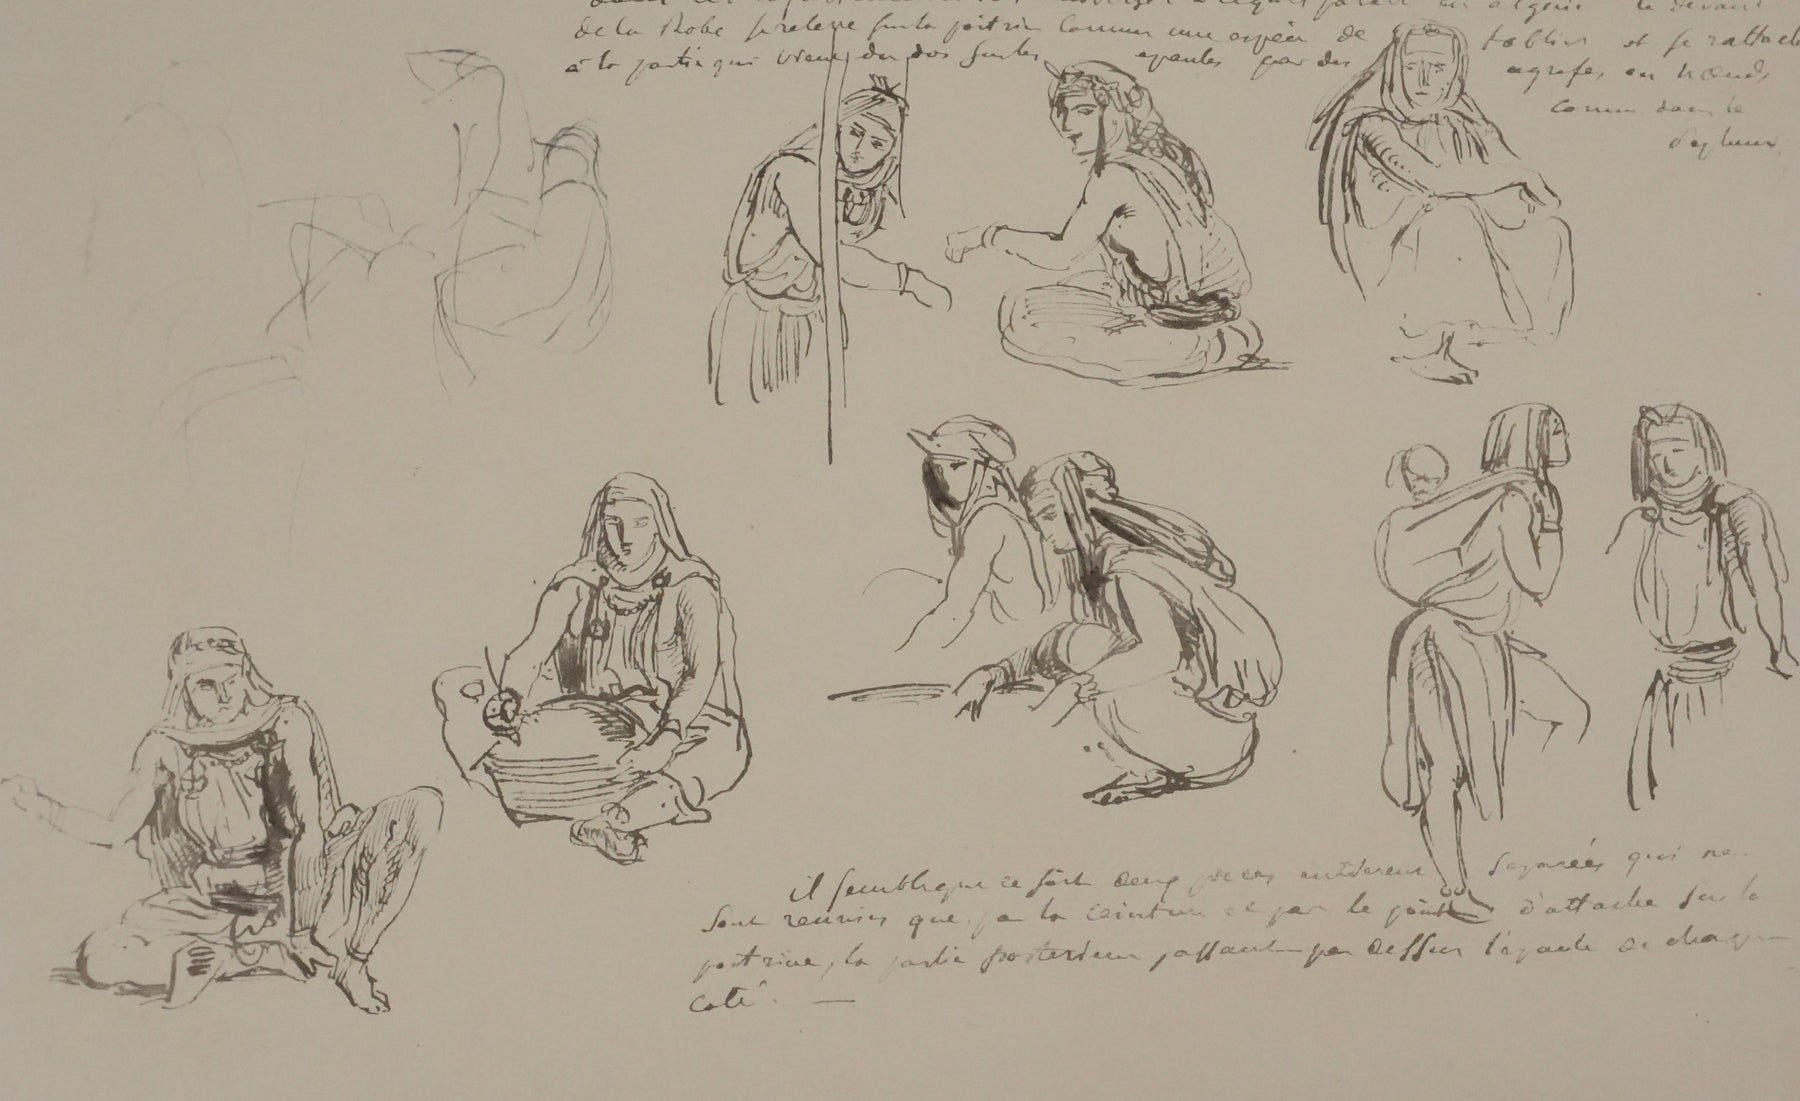 de la Robe se releve sur la poitrine comme une espèce de tablier et se rattache
à la partie qui vient du dos sur les epaules par des agrafes, ou nœuds
comme dans le
il semble que ce soit deux pieces entierement separées qui ne
sont reunies que par la ceinture et par le point d'attache sur la
poitrine, la partie posterieure passant par dessus l'epaule de chaque
coté. —